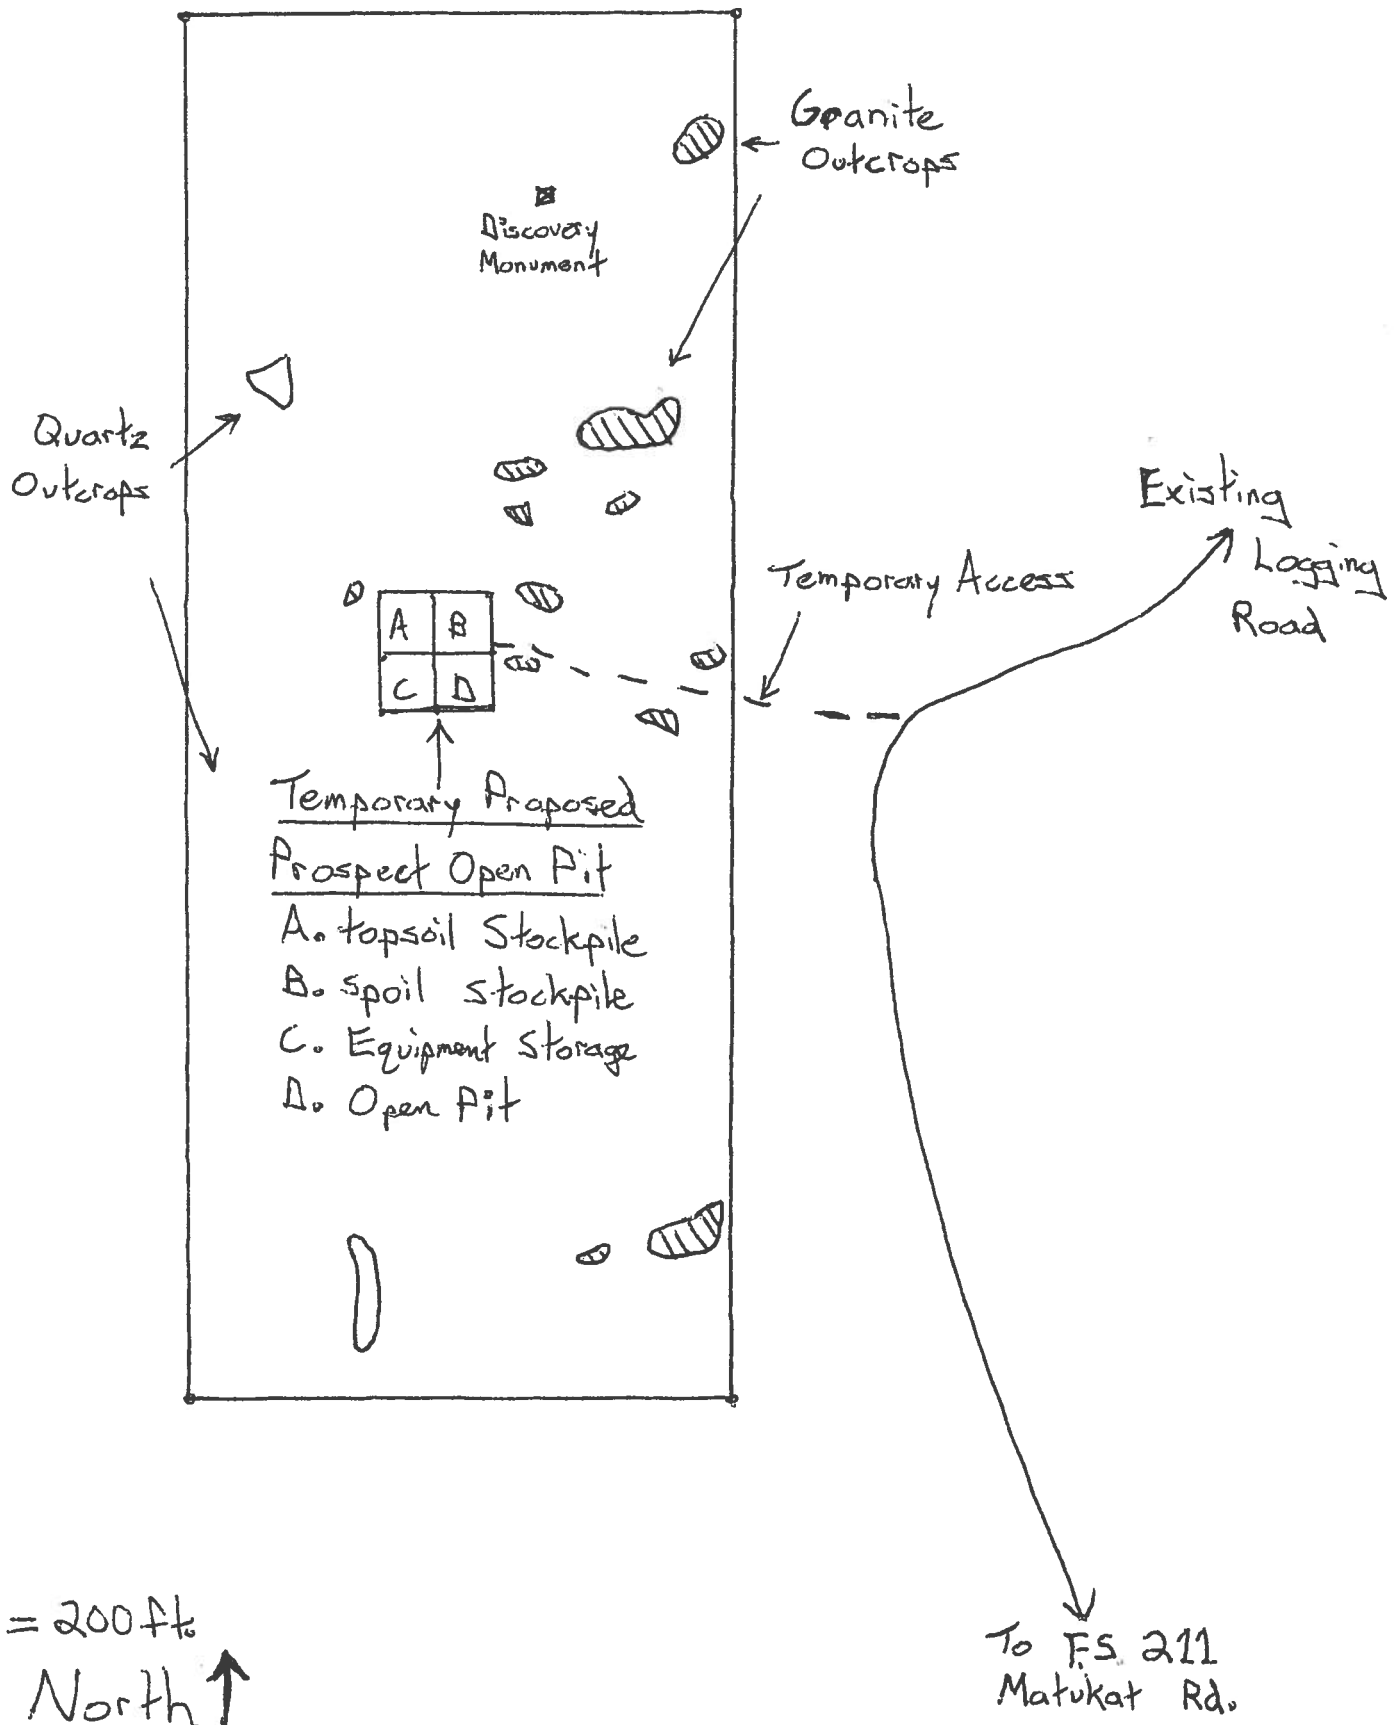 Granite
Outcrops
Discovery
Monument
Quartz
Outcrops
Existing
Logging
Road
Temporary Access
A B
C D
Temporary Proposed
Prospect Open Pit
A. topsoil Stockpile
B. spoil stockpile
C. Equipment Storage
D. Open Pit
= 200 ft.
North
To F.S. 211
Matukat Rd.